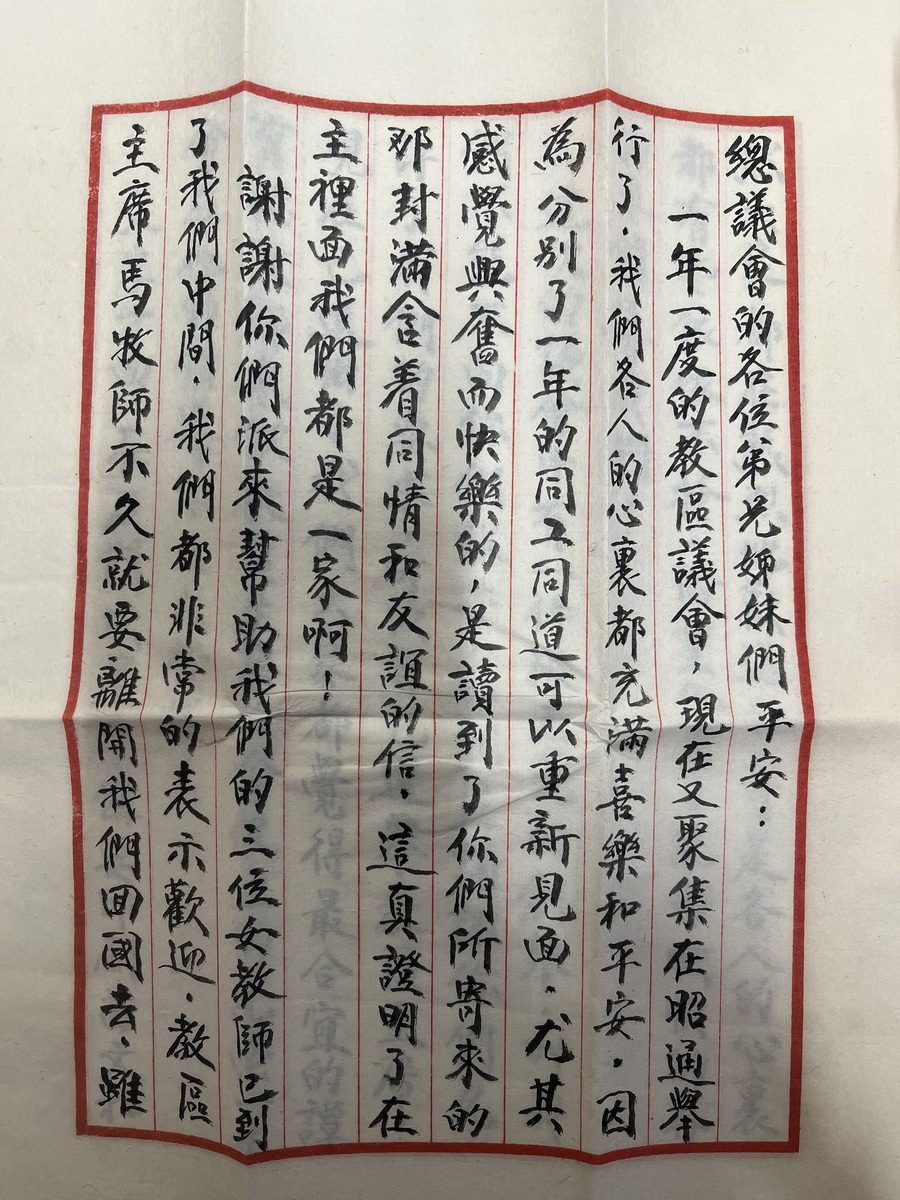 總議會的各位弟兄姊妹們平安：
一年一度的教區議會，現在又聚集在昭通舉
行了．我們各人的心裏都充滿喜樂和平安．因
為分別了一年的同工同道可以重新見面．尤其
感覺興奮而快樂的，是讀到了你們所寄來的
那封滿含着同情和友誼的信．這真證明了在
主裡面我們都是一家啊！
謝謝你們派來幫助我們的三位女教師已到
了我們中間．我們都非常的表示歡迎．教區
主席馬牧師不久就要離開我們回國去．雖